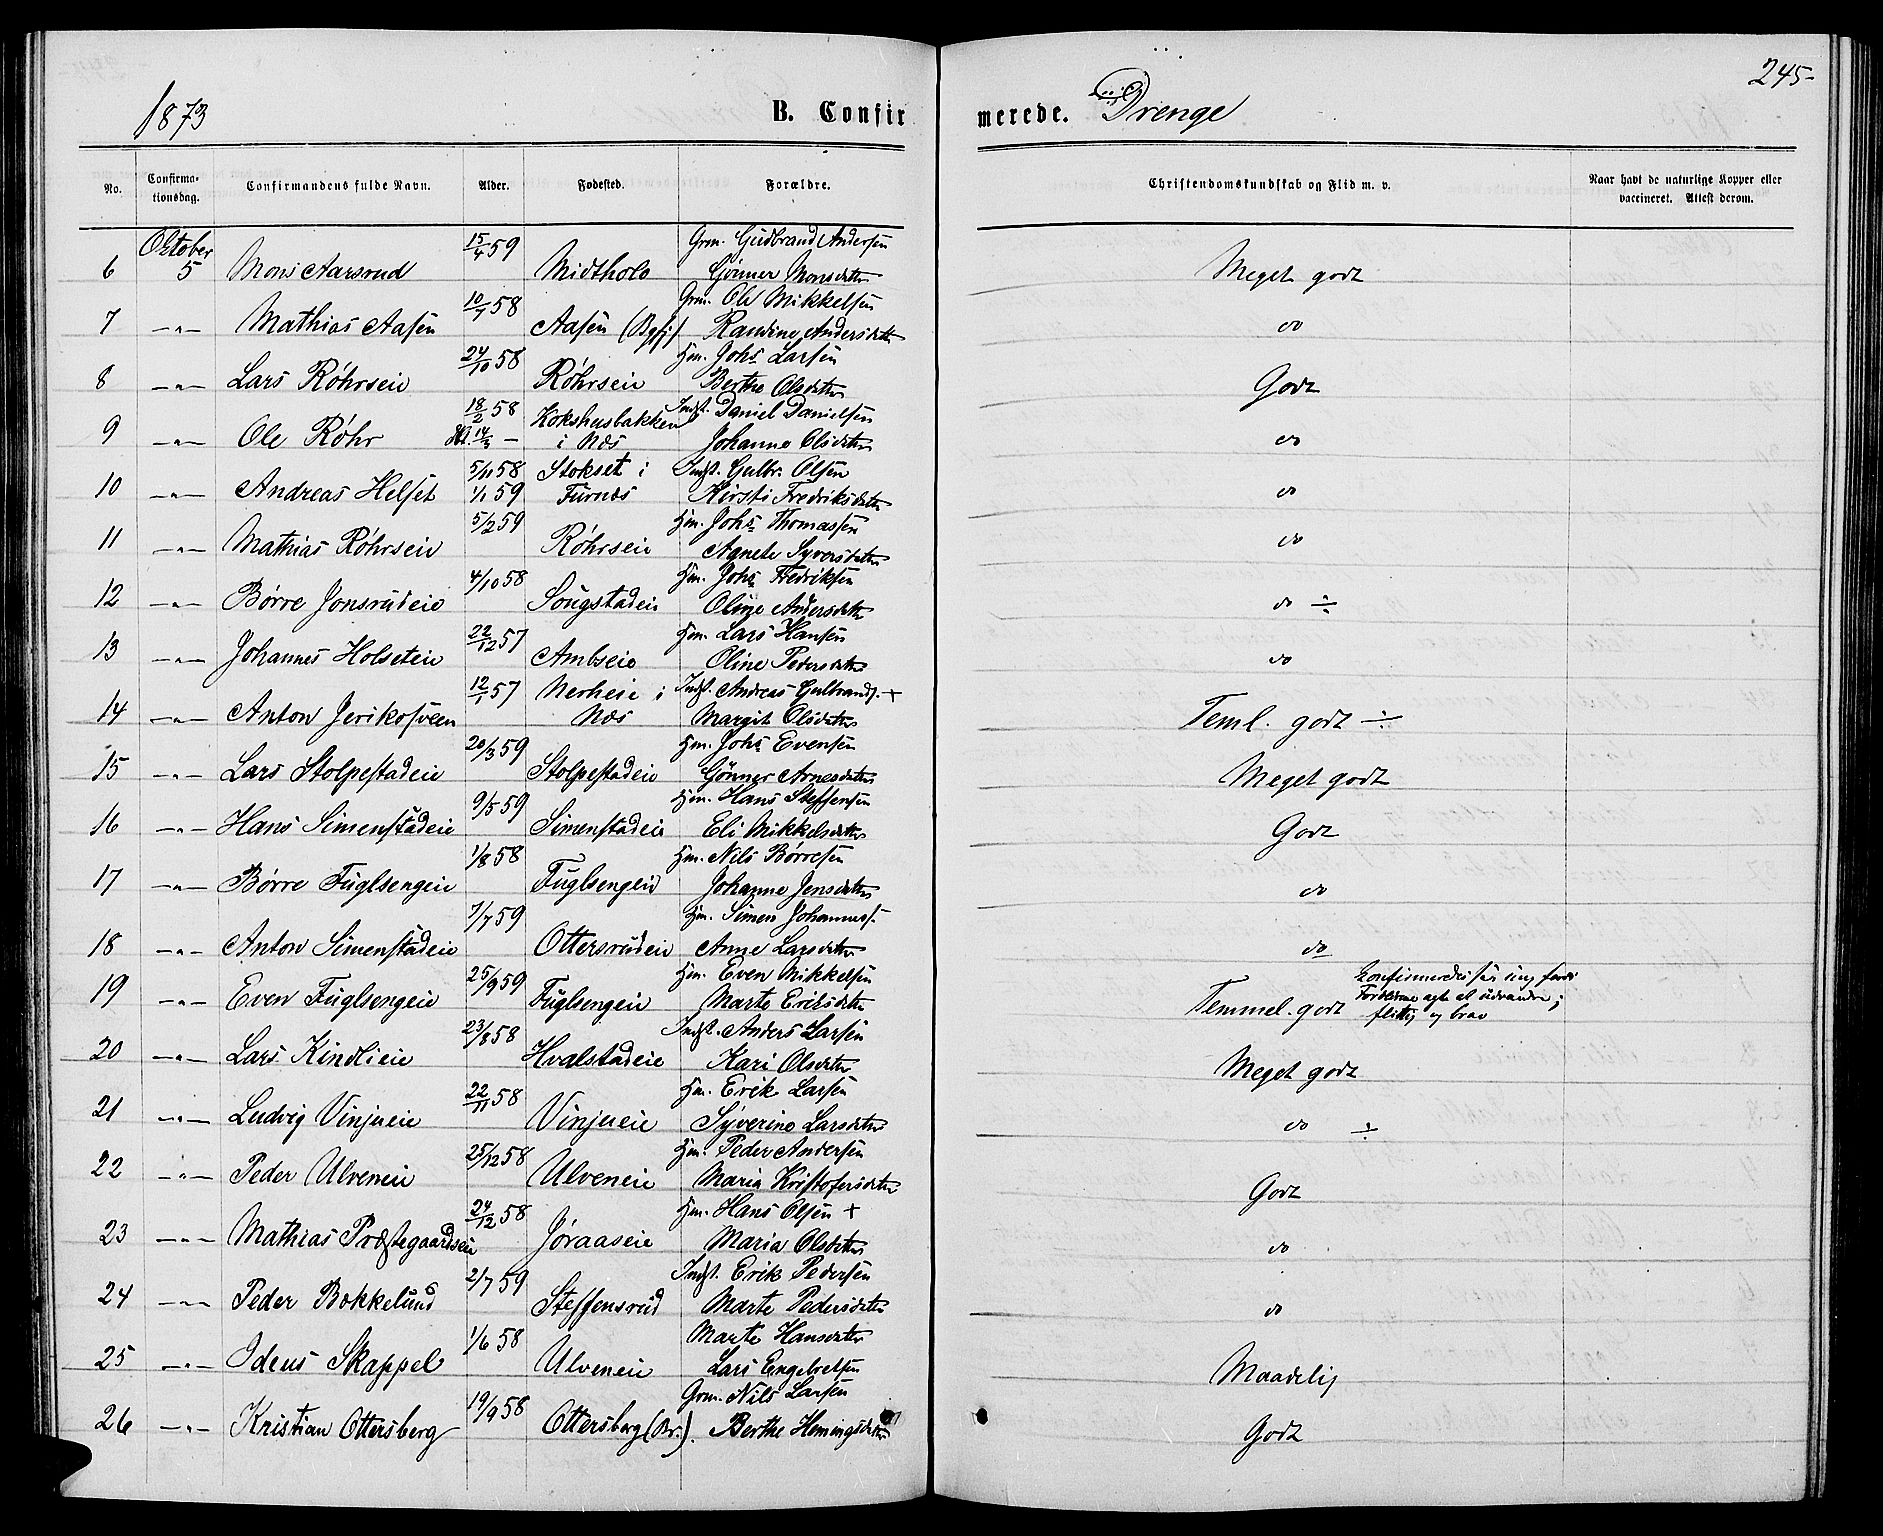 245-
1873 B. Confirmerede. Drenge
No. Confirmationsdag. Confirmandens fulde Navn. Alder. Fødested. Forældre. Christendomskundskab og Flid m. v. Naar havt de naturlige Kopper eller vaccineret. Attest derom.
Oktober 15/4 59 Grm. Gudbrand Andersen
6 5 Mons Aarsrud Midtholo Gönner Monsdatter Meget godt
10/1 58 Grm. Ole Mikkelsen
7 -"- Mathias Aasen Aasen Randine Andersdatter do
24/10 58 Hm. Johs Larsen
8 -"- Lars Röhrseie Röhrseie Berthe Olsdatter Godt
18/2 58 Kokshusbakken Indst. Daniel Danielsen
9 -"- Ole Röhr 14/3 - i Næs Johanne Olsdatter do
5/11 58 Stokset i Indst. Gulbr. Olsen
10 -"- Andreas Helset 1/1 59 Furnæs Kirsti Fredriksdatter do
5/2 59 Hm. Johs Thomassen
11 -"- Mathias Röhrseie Röhrseie Agnete Syversdatter do
4/10 58 Hm. Johs Fredriksen
12 -"- Börre Jonsrudeie Sougstadeie Oline Andersdatter do ÷
22/12 57 Hm. Lars Hansen
13 -"- Johannes Holseteie Ambseie Oline Pedersdatter do
12/1 57 Nerheie i Indst. Andreas Gulbrands. +
14 -"- Anton Jerikosveen Næs Margit Olsdatter Teml. godt ÷
20/3 59 Hm. Johs Evensen
15 -"- Lars Stolpestadeie Stolpestadeie Gönner Arnesdatter Meget godt
9/5 59 Hm. Hans Steffensen
16 -"- Hans Simenstadeie Simenstadeie Eli Mikkelsdatter Godt
1/8 58 Hm. Nils Börresen
17 -"- Börre Fuglsengeie Fuglsengeie Johanne Jensdatter do
7/7 59 Hm. Simen Johanness.
18 -"- Anton Simenstadeie Ottersrudeie Anne Larsdatter do
25/9 59 Hm. Even Mikkelsen
19 -"- Even Fuglsengeie Fuglsengeie Marte Eriksdatter Temmel. godt Konfirmeredes saa ung fordi Forældrene agte at udvandre; flittig og brav
23/8 58 Indst. Anders Larsen
20 -"- Lars Kindlieie Hvalstadeie Kari Olsdatter Meget godt
22/11 58 Hm. Erik Larsen
21 -"- Ludvig Vinjueie Vinjueie Syverine Larsdatter do ÷
25/12 58 Hm. Peder Andersen
22 -"- Peder Ulveneie Ulveneie Maria Kristofersdatter Godt
24/12 58 Hm. Hans Olsen +
23 -"- Mathias Præstegaardseie Jöraaseie Maria Olsdatter do
2/7 59 Indst. Erik Pedersen
24 -"- Peder Bækkelund Steffensrud Marte Pedersdatter do
1/6 58 Marte Hansdatter
25 -"- Ideus Skappel Ulveneie Lars Engebretsen Maadelig
19/9 58 Grm. Nils Larsen
26 -"- Kristian Ottersberg Ottersberg (Br.). Berthe Hemingsdatter Godt